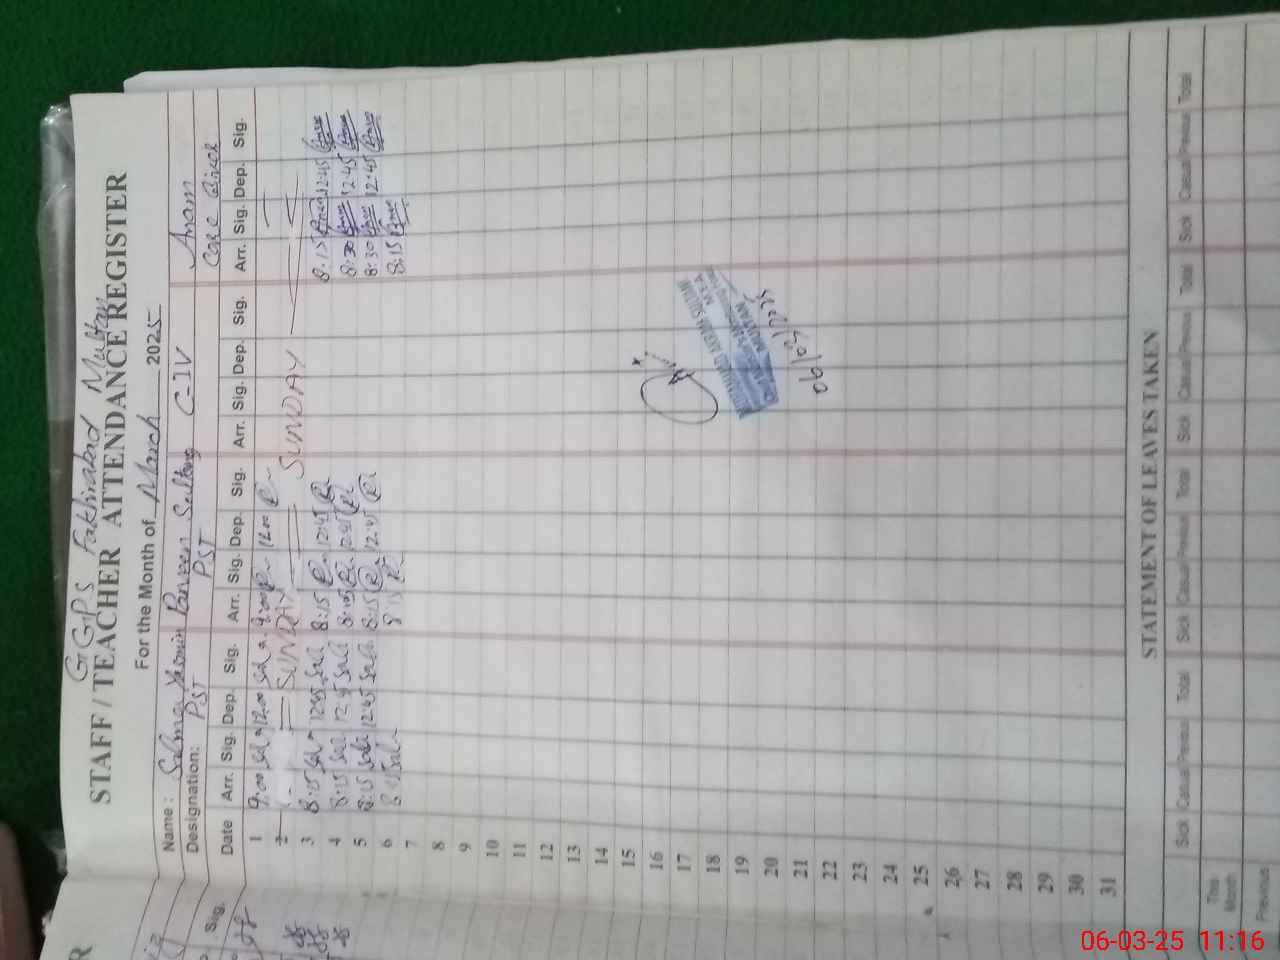 GGPS Fakhirabad Multan
STAFF / TEACHER ATTENDANCE REGISTER
For the Month of March 2025
Name : Salma Yasmin Parveen Sultana C-IV Anam
Designation: PST PST Care Giver
Date Arr. Sig. Dep. Sig. Arr. Sig. Dep. Sig. Arr. Sig. Dep. Sig. Arr. Sig. Dep. Sig.
1 9:00 12:00 9:00 12:00
2 SUNDAY SUNDAY
3 8:15 12:45 8:15 12:45 8:15 12:45
4 8:15 12:45 8:15 12:45 8:30 12:45
5 8:15 12:45 8:15 12:45 8:30 12:45
6 8:15 8:15 8:15
7
8
9
10
11
12
13
14
15
16
17
18
19
20
21
22
23
24
25
26
27
28
29
30
31
MULTAN
06/03/2025
STATEMENT OF LEAVES TAKEN
Sick Casual Previous Total Sick Casual Previous Total Sick Casual Previous Total Sick Casual Previous Total
This Month
Previous
Sig.
06-03-25 11:16